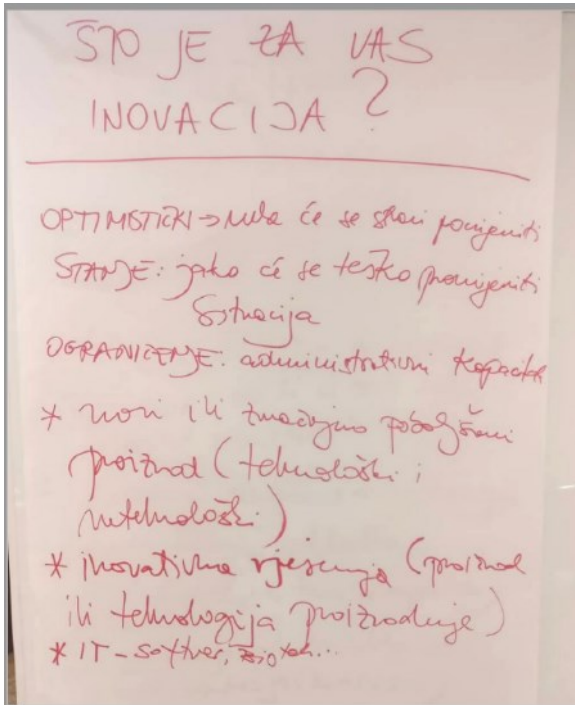 ŠTO JE ZA VAS
INOVACIJA?
OPTIMISTIČKI → će se stvari promijeniti
STANJE: jako će se teško promijeniti
situacija
OGRANIČENJE: administrativni kapacitet
* novi ili značajno poboljšani
proizvod (tehnološki i
netehnološki)
* inovativna rješenja (proizvod
ili tehnologija proizvodnje)
* IT-softver, bioteh...